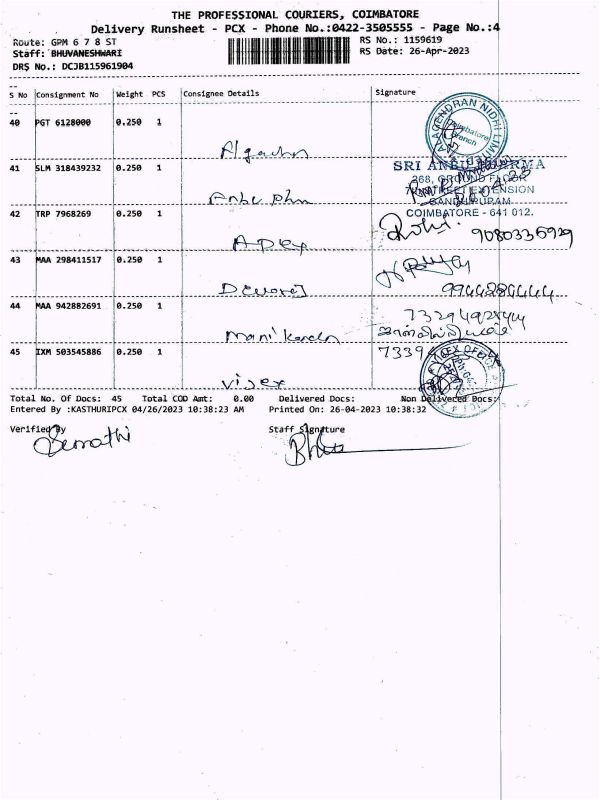 THE PROFESSIONAL COURIERS, COIMBATORE
Delivery Runsheet - PCX - Phone No.:0422-3505555 - Page No.:4
Route: GPM 6 7 8 ST
RS No.: 1159619
Staff: BHUVANESHWARI
RS Date: 26-Apr-2023
DRS No.: DCJB115961904
S No Consignment No Weight PCS Consignee Details Signature
40 PGT 6128000 0.250 1
41 SLM 318439232 0.250 1
SRI ANBU PHARMA
268, GROUND FLOOR
7TH STREET EXTENSION
GANDHIPURAM
COIMBATORE - 641 012.
42 TRP 7968269 0.250 1
9080335929
43 MAA 298411517 0.250 1
Devaraj
9944284444
44 MAA 942882691 0.250 1
Manikanden
45 IXM 503545886 0.250 1
7339
Total No. Of Docs: 45 Total COD Amt: 0.00 Delivered Docs: Non Delivered Docs:
Entered By :KASTHURIPCX 04/26/2023 10:38:23 AM Printed On: 26-04-2023 10:38:32
Verified By
Staff Signature